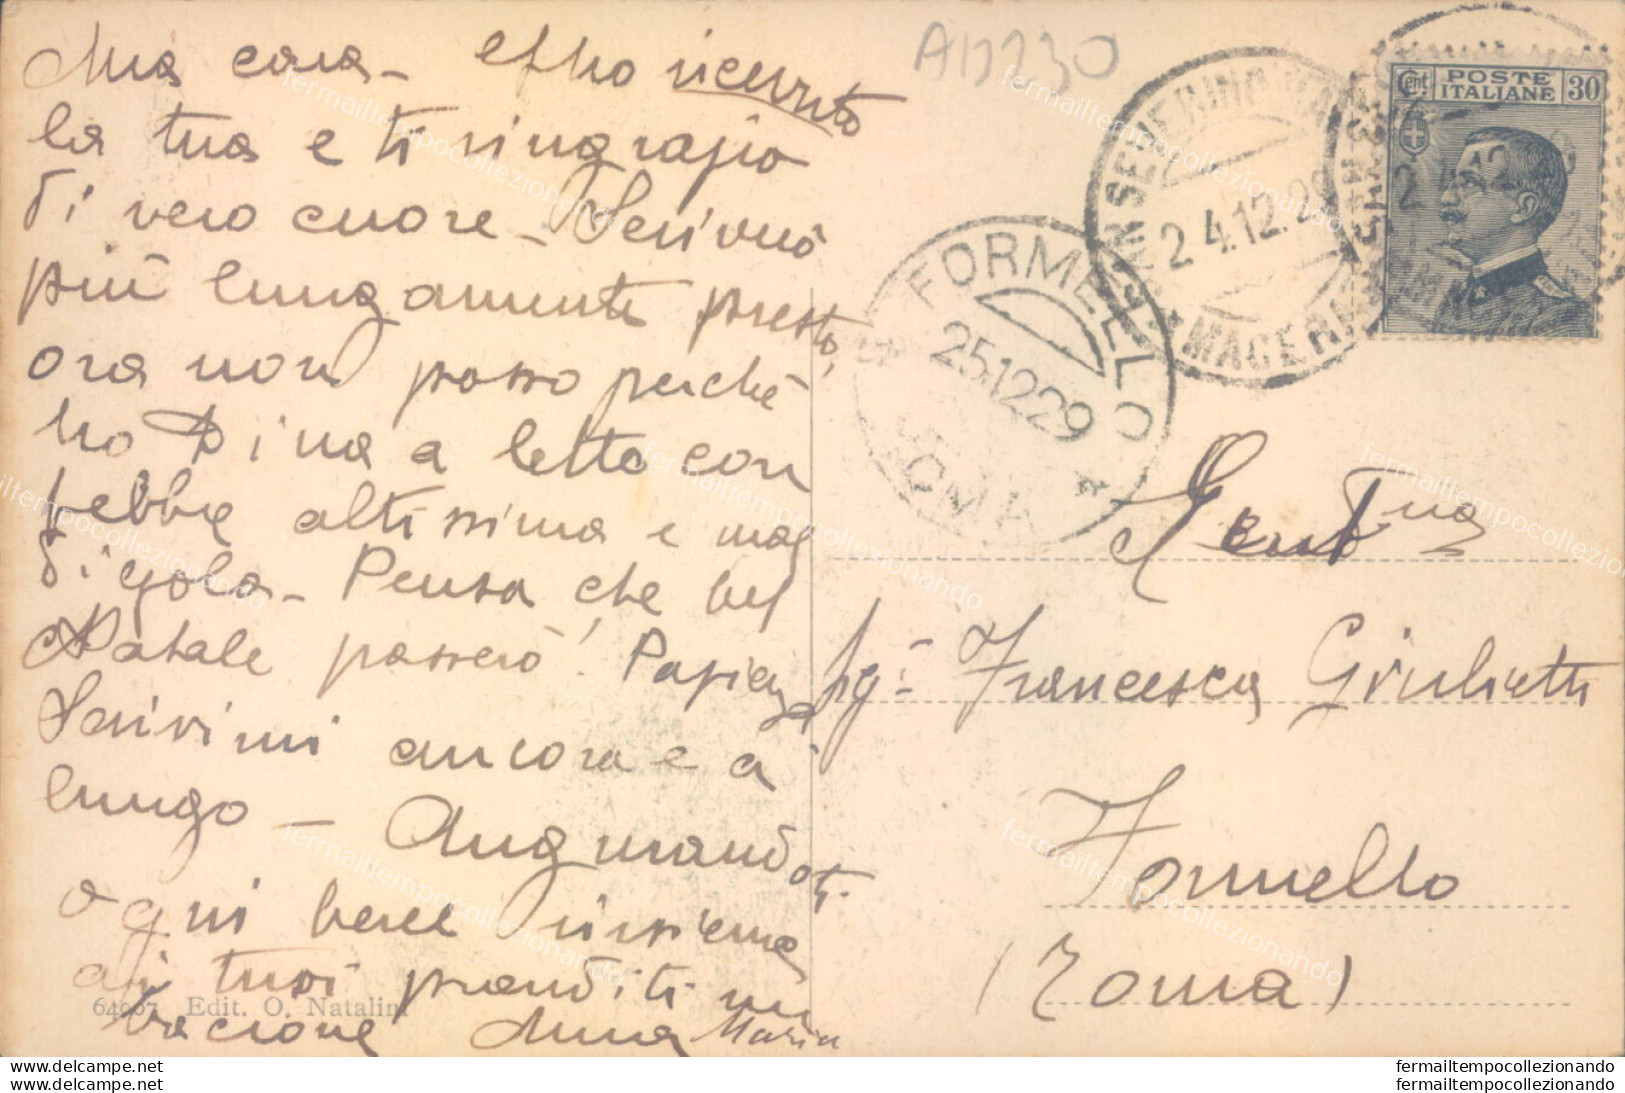 Mia cara - Eppo ricevuto
la tua e ti ringrazio
di vero cuore - Scriverò
più lungamente presto,
ora non posso perché
ho Dina a letto con
febbre altissima e mal
di gola - Pensa che bel
Natale passerò! Pazienza
Scrivimi ancora e a
lungo - Augurandoti
ogni bene insieme
ai tuoi prenditi un
bacione Anna Maria
64907 Edit. O. Natalini
A17230
SANSEVERINO MARCHE
24.12.29
MACERATA
FORMELLO
25.12.29
ROMA
Cent. POSTE ITALIANE 30
Gent.ma
Sig.na Francesca Giulietti
Formello
(Roma)
fermailtempocollezionando
www.delcampe.net fermailtempocollezionando
www.delcampe.net fermailtempocollezionando